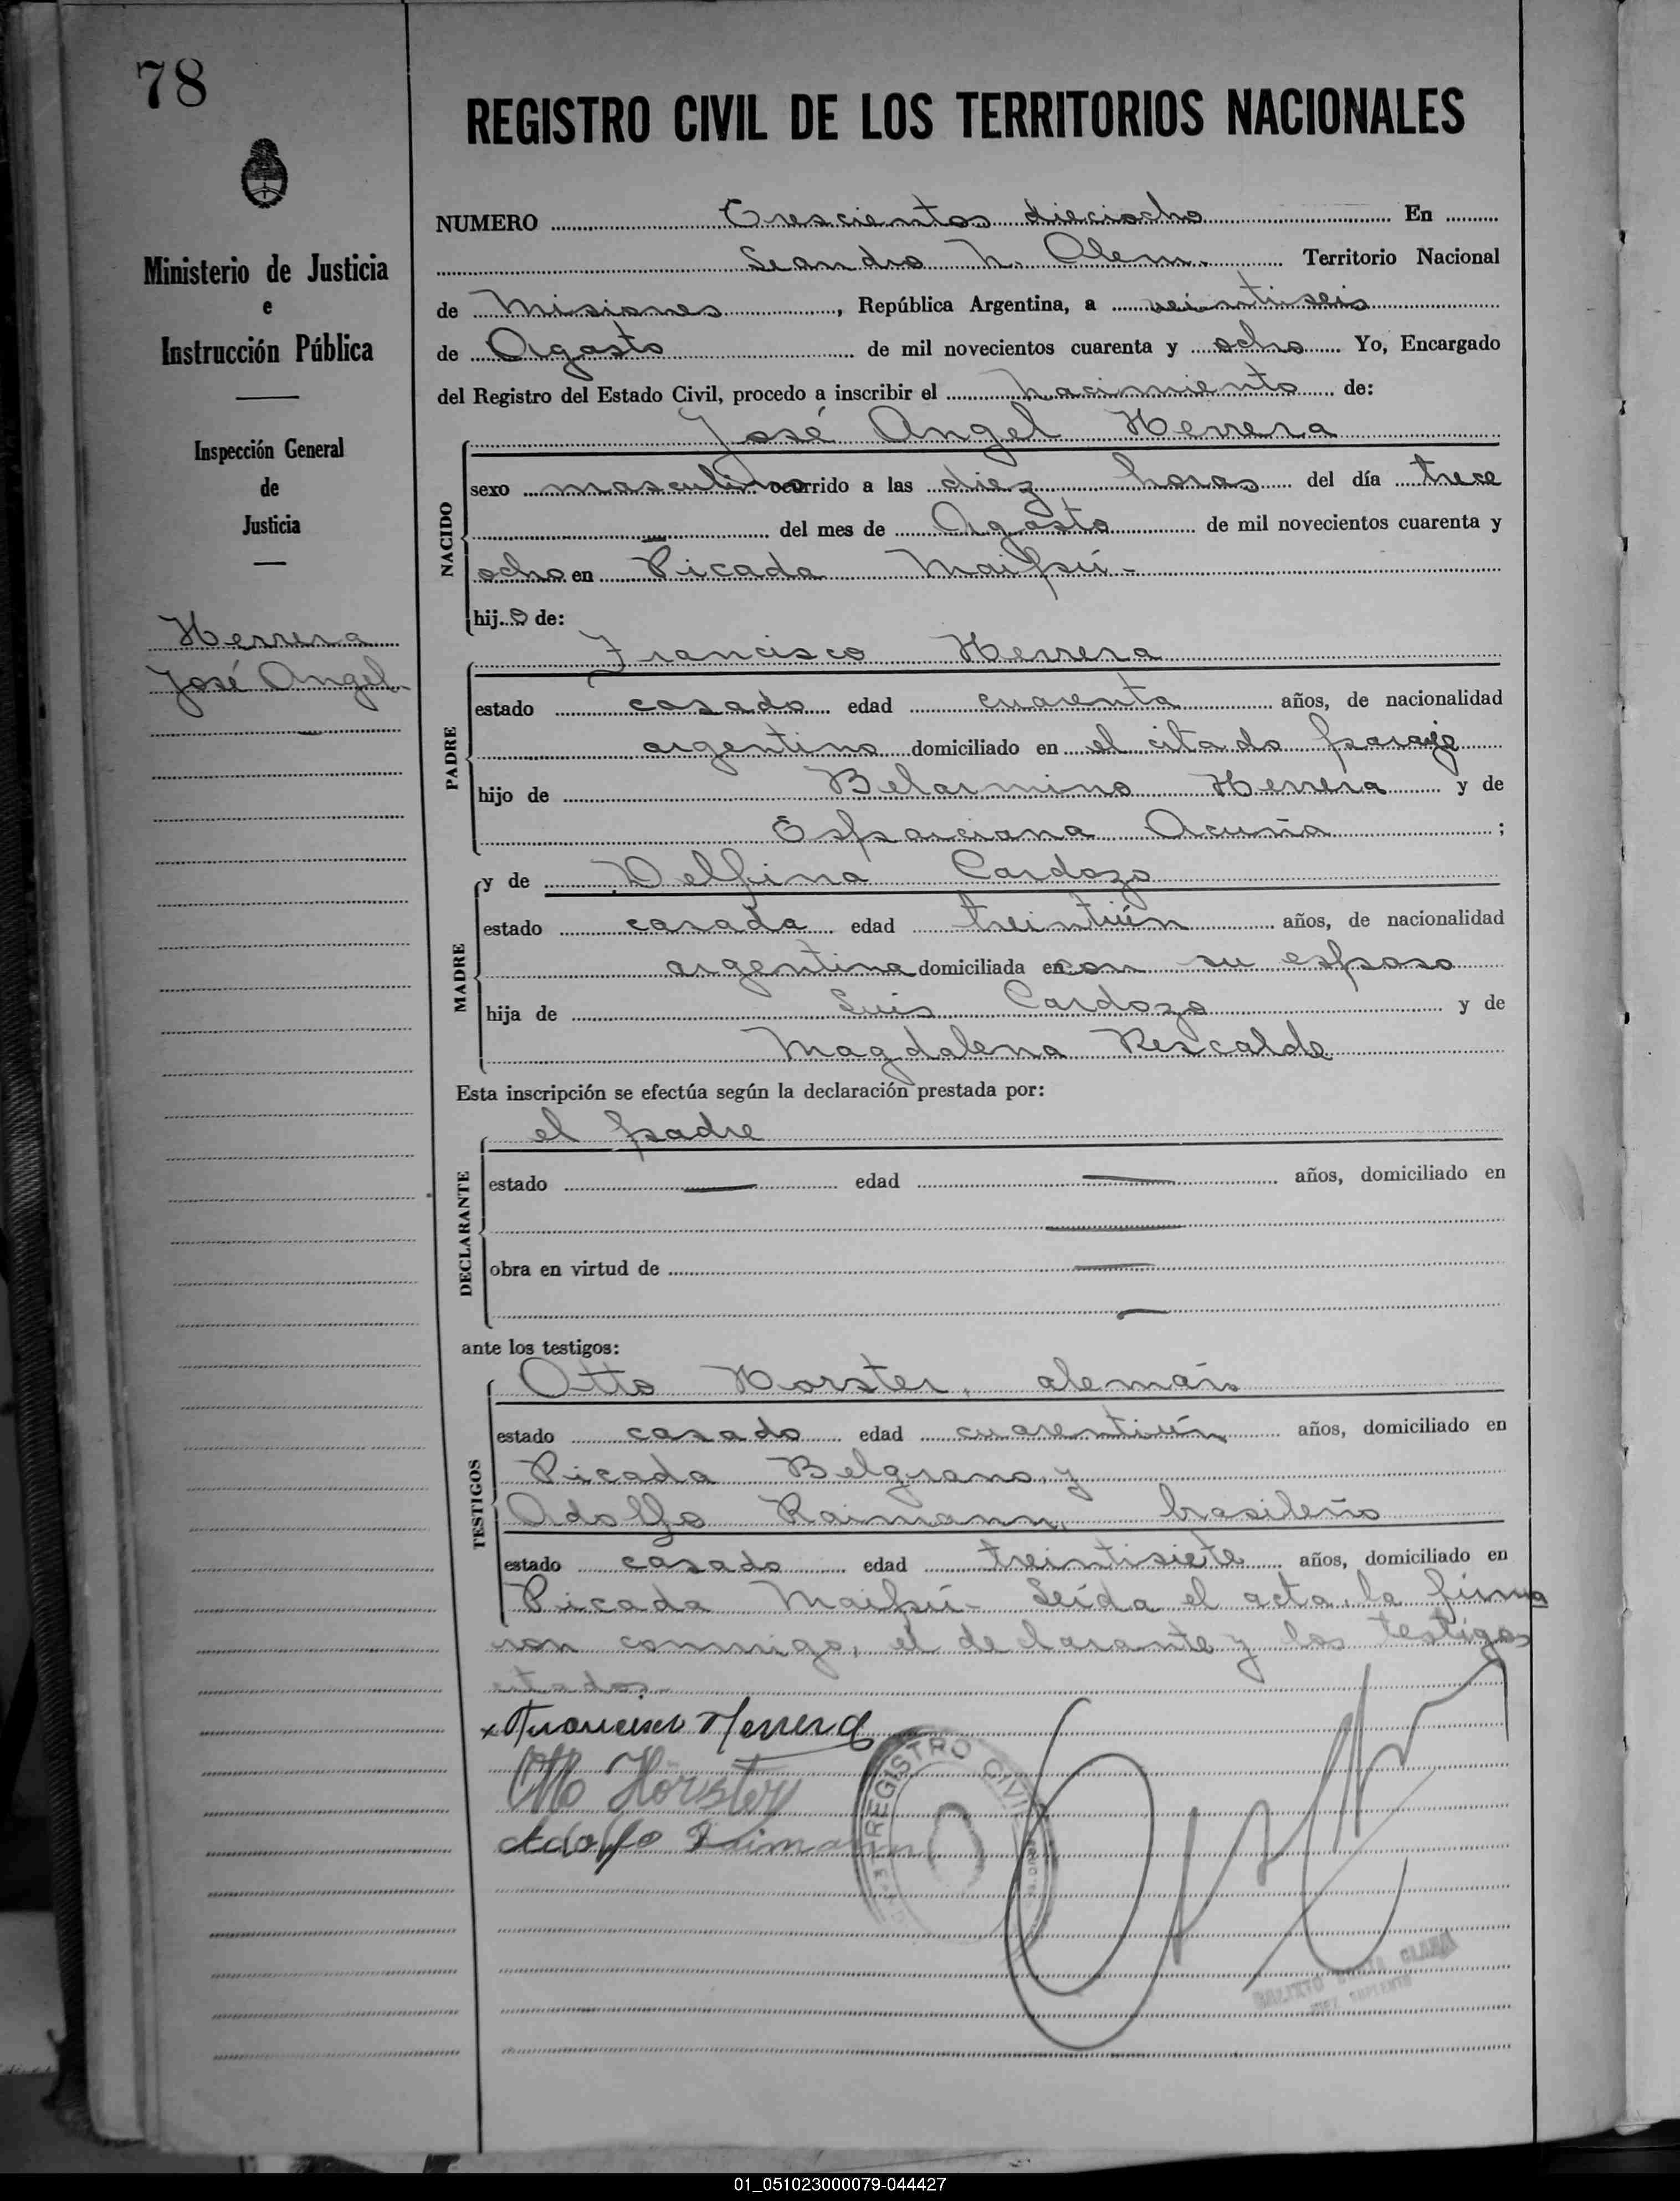 78
REGISTRO CIVIL DE LOS TERRITORIOS NACIONALES
Ministerio de Justicia
e
Instrucción Pública
Inspección General
de
Justicia
Herrera
José Angel
NUMERO Trescientos dieciocho En
Leandro N. Alem. Territorio Nacional
de Misiones, República Argentina, a veintiseis
de Agosto de mil novecientos cuarenta y ocho Yo, Encargado
del Registro del Estado Civil, procedo a inscribir el nacimiento de:
José Angel Herrera
NACIDO
sexo masculino ocurrido a las diez horas del día trece
— del mes de Agosto de mil novecientos cuarenta y
ocho en Picada Maipú -
hijo de:
Francisco Herrera
PADRE
estado casado edad cuarenta años, de nacionalidad
argentino domiciliado en el citado paraje
hijo de Belarmino Herrera y de
Esparciana Acuña ;
y de Delfina Cardozo
MADRE
estado casada edad treintiún años, de nacionalidad
argentina domiciliada en con su esposo
hija de Luis Cardozo y de
Magdalena Rescalde
Esta inscripción se efectúa según la declaración prestada por:
el padre
DECLARANTE
estado — edad — años, domiciliado en
—
obra en virtud de —
—
ante los testigos:
Otto Horster, alemán
TESTIGOS
estado casado edad cuarentiún años, domiciliado en
Picada Belgrano, y
Adolfo Raimann, brasileño
estado casado edad treintisiete años, domiciliado en
Picada Maipú - Leída el acta, la firma
ron conmigo, el declarante y los testigos
citados.-
x Francisco Herrera
Otto Hörster
Adolfo Raimann
REGISTRO CIVIL
01_051023000079-044427